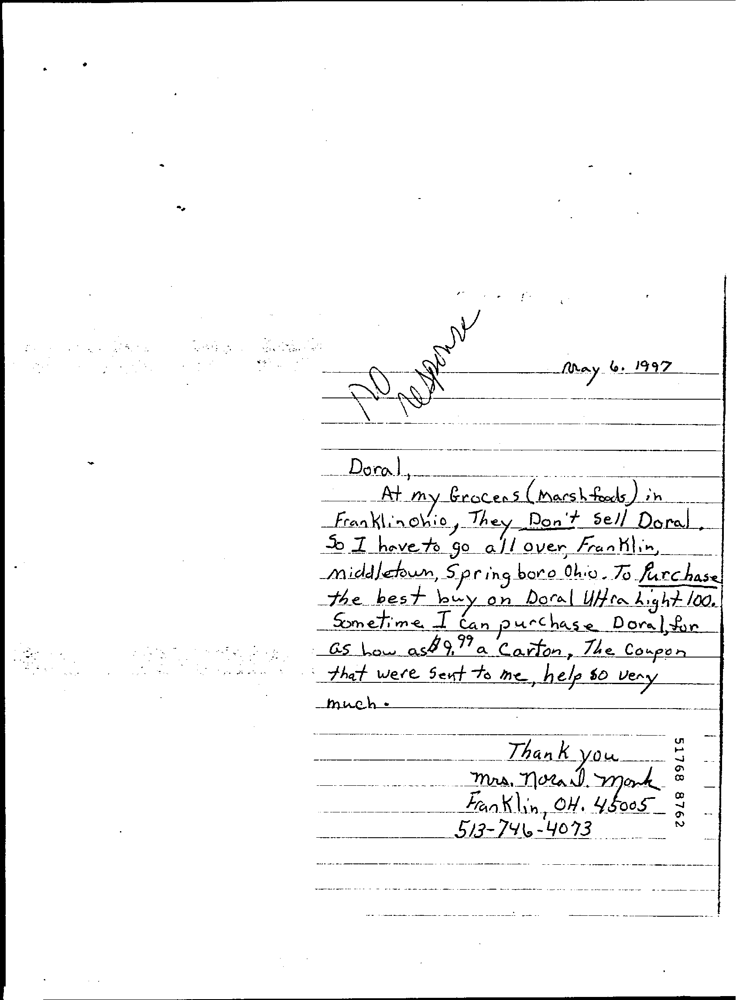 No
response
May 6. 1997
Doral,
At my Grocers (Marsh foods) in
Franklin ohio, They Don't Sell Doral.
So I have to go all over, Franklin,
Middletown, Springboro Ohio. To Purchase
the best buy on Doral Ultra Light 100.
Sometime I can purchase Doral, for
as Low as $9.99 a Carton, The Coupon
that were Sent to me, help so very
much.
Thank you
Mrs. Nora D. Monk
Franklin, OH. 45005
513-746-4073
51768 8762